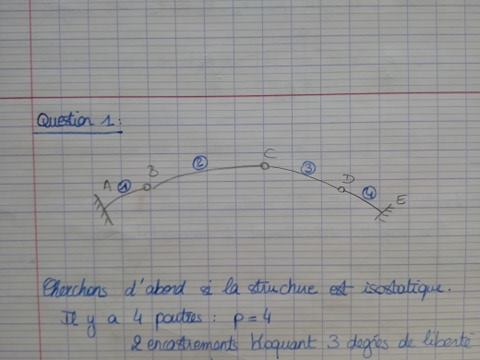 Question 1:
C
B
②
③
A
①
D
④
E
Cherchons d'abord si la structure est isostatique.
Il y a 4 poutres : p = 4
2 encastrements bloquant 3 degrés de liberté